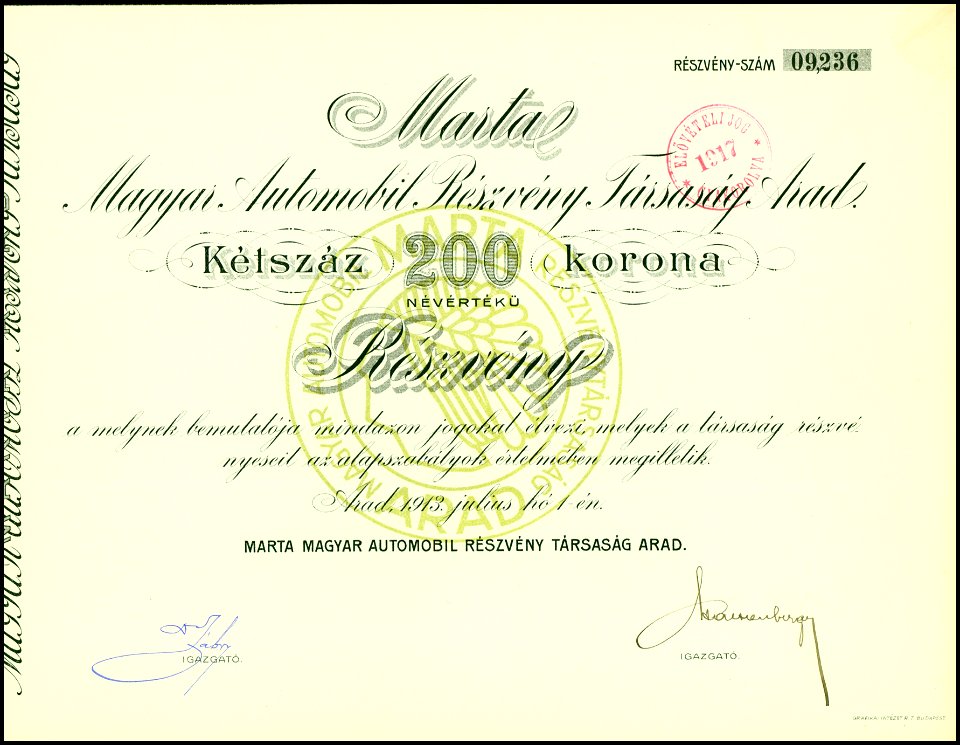 RÉSZVÉNY-SZÁM 09,236
Marta
ELŐVÉTELI JOG
1917
GYAKOROLVA
Magyar Automobil Részvény Társaság Arad.
Kétszáz 200 korona
NÉVÉRTÉKŰ
MARTA
MAGYAR AUTOMOBIL RÉSZVÉNY TÁRSASÁG
ARAD
Részvény
a melynek bemutatója mindazon jogokat élvezi, melyek a társaság részvé-
nyeseit az alapszabályok értelmében megilletik.
Arad, 1913. julius hó 1-én.
MARTA MAGYAR AUTOMOBIL RÉSZVÉNY TÁRSASÁG ARAD.
IGAZGATÓ.
IGAZGATÓ.